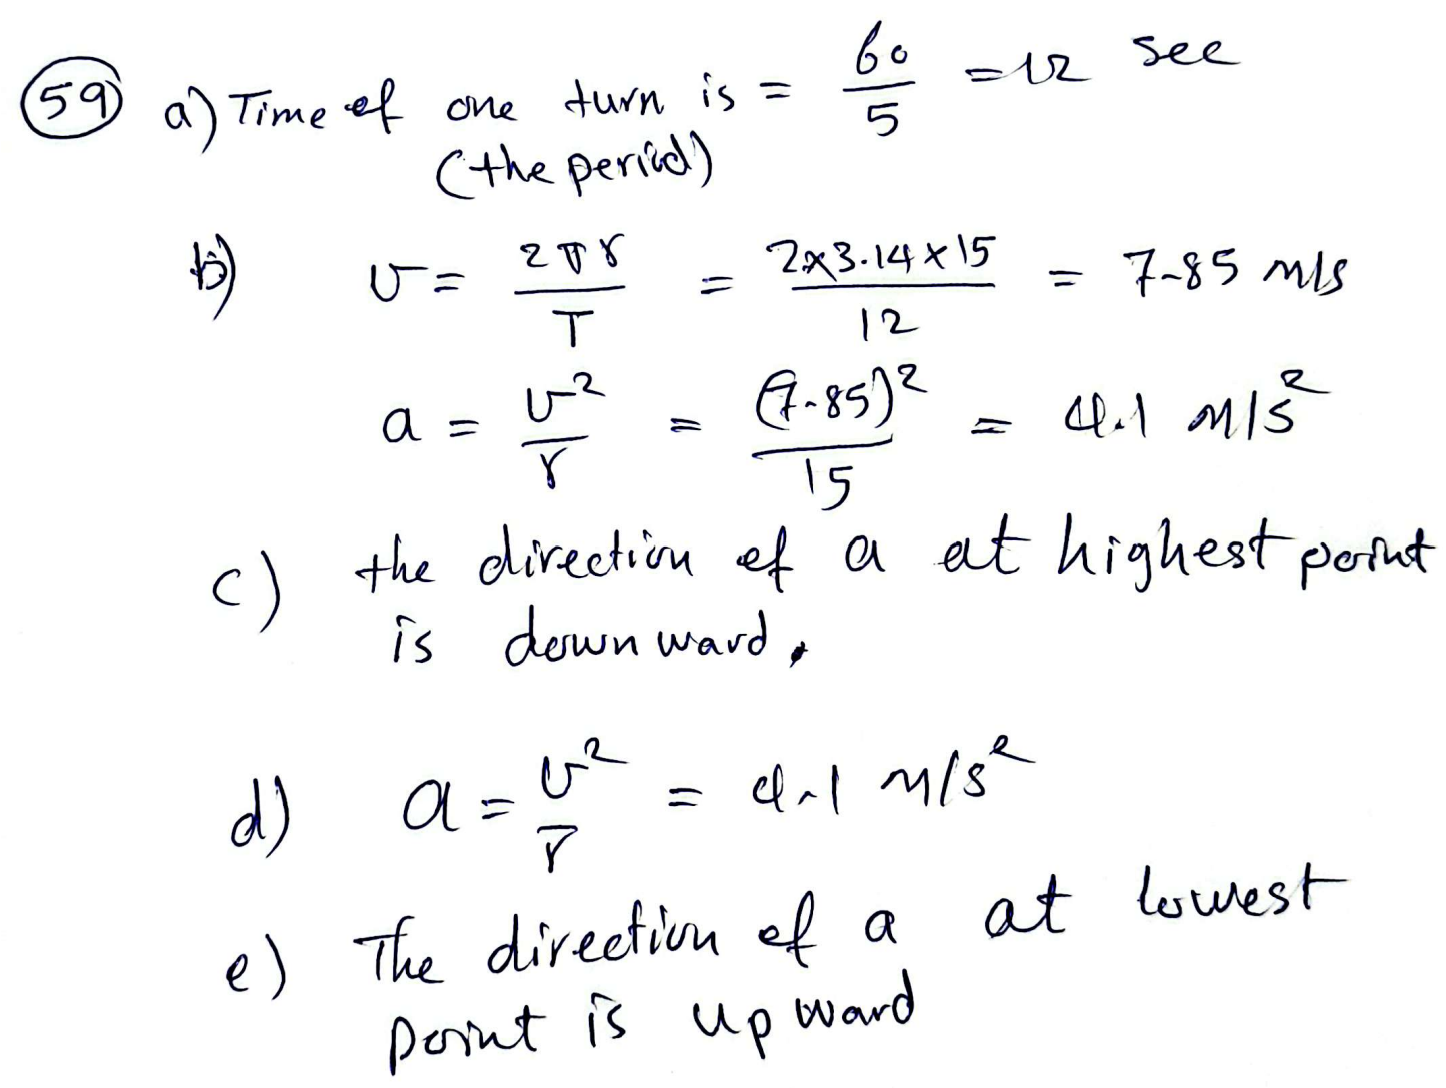 59 a) Time of one turn is = 60/5 = 12 sec
(the period)
b) v = 2πr/T = 2×3.14×15/12 = 7.85 m/s
a = v²/r = (7.85)²/15 = 4.1 m/s²
c) the direction of a at highest point
is downward.
d) a = v²/r = 4.1 m/s²
e) The direction of a at lowest
point is upward